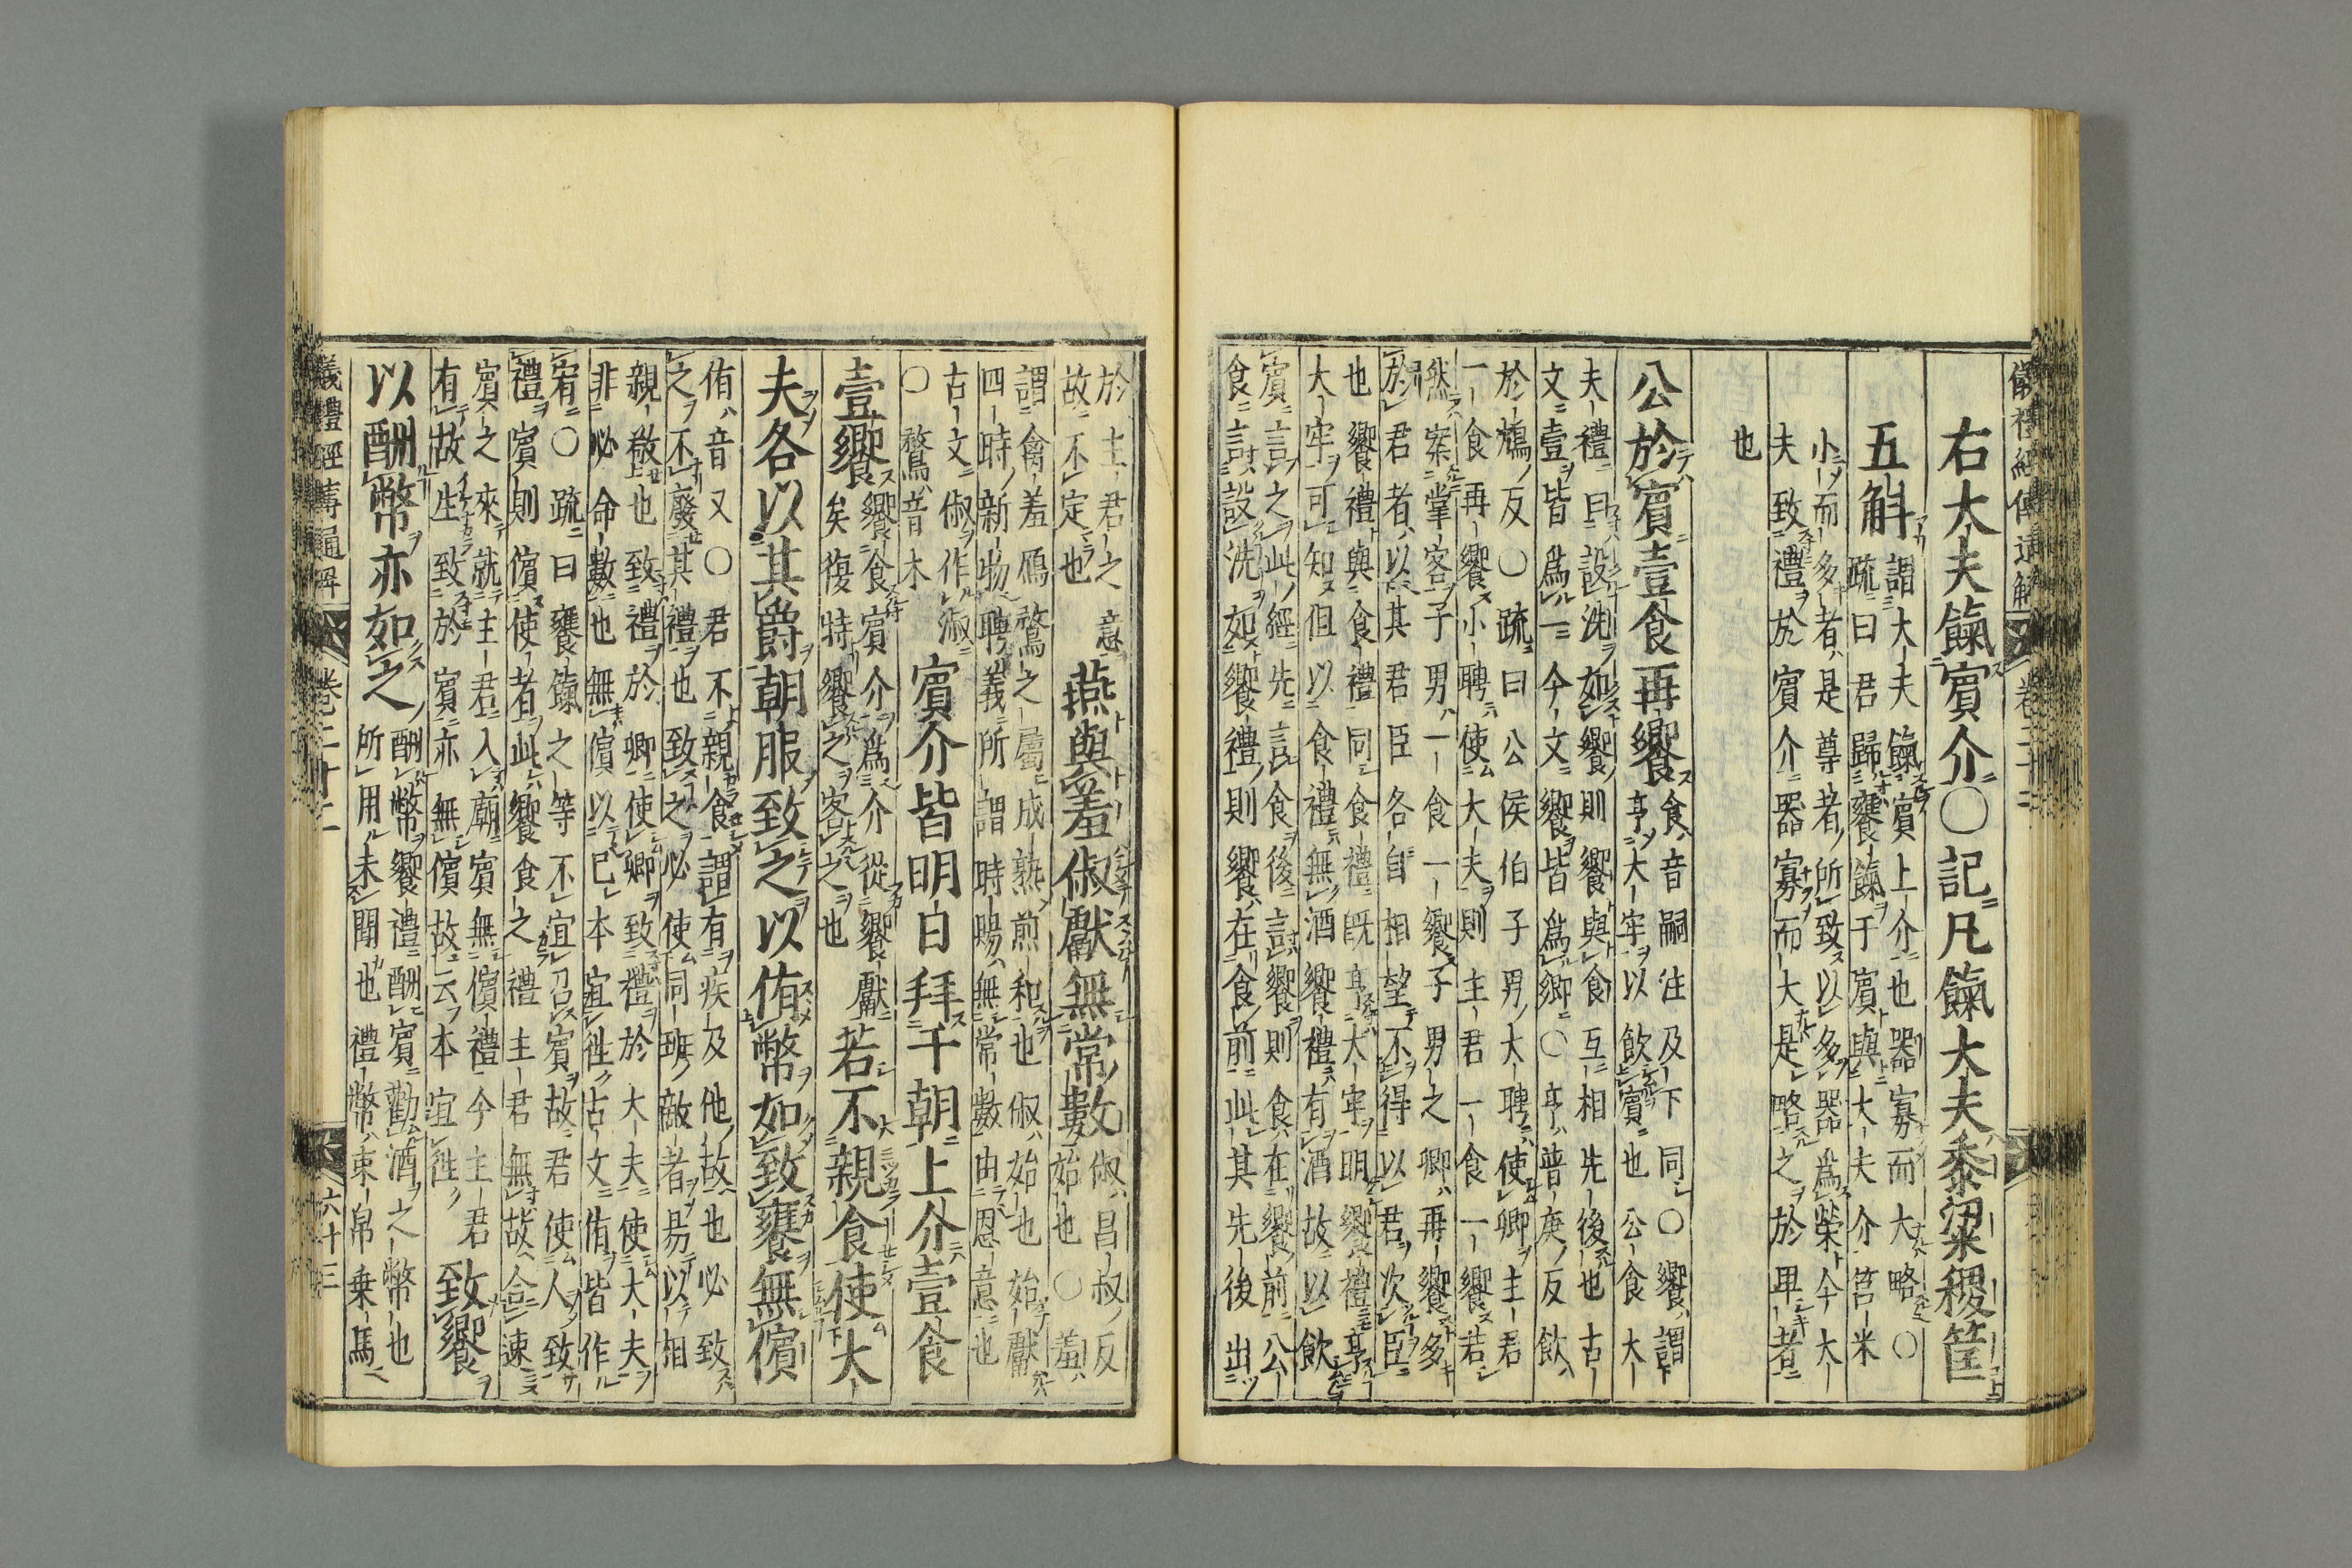 儀禮經傳通解 卷二十二
右大夫餼賓介○記凡餼大夫黍粱稷筐
五斛
謂大夫餼賓上介也器寡而大略○
疏曰君歸饔餼于賓與大夫介筥米
小而多者是尊者所致以多器爲榮今大
夫致禮於賓介器寡而大是略之於卑者
也
公於賓壹食再饗
食音嗣注及下同○饗謂
亨大牢以飲賓也公食大
夫禮曰設洗如饗則饗與食互相先後也古
文壹皆爲一今文饗皆爲鄉○亨普庚反飲
於鴆反○疏曰公侯伯子男大聘使卿主君
一食再饗小聘使大夫則主君一食一饗若
然案掌客子男一食一饗子男之卿再饗多
於君者以其君臣各自相望不得以君次臣
也饗禮與食禮同食禮既亨大牢明饗禮亨
大牢可知但以食禮無酒饗禮有酒故以飲
賓言之此經先言食後言饗則食在饗前公
食言設洗如饗禮則饗在食前此其先後出
於主君之意
故不定也
燕與羞俶獻無常數
俶昌叔反
始也○羞
謂禽羞鴈鶩之屬成熟煎和也俶始也始獻
四時新物聘義所謂時賜無常數由恩意也
古文俶作淑
○鶩音木
賓介皆明日拜于朝上介壹食
壹饗
饗食賓介爲介從饗獻
矣復特饗之客之也
若不親食使大
夫各以其爵朝服致之以侑幣如致饔無儐
侑音又○君不親食謂有疾及他故也必致
之不廢其禮也致之必使同班敵者易以相
親敬也致禮於卿使卿致禮於大夫使大夫
非必命數也無儐以己本宜往古文侑皆作
宥○疏曰饔餼之等不宜召賓故君使人致
禮賓則儐使者此饗食之禮主君無故合速
賓之來就主君入廟賓無儐禮今主君
有故生致於賓亦無儐故云本宜往
致饗
以酬幣亦如之
酬幣饗禮酬賓勸酒之幣也
所用未聞也禮幣束帛乗馬
儀禮經傳通解 卷二十二 六十三